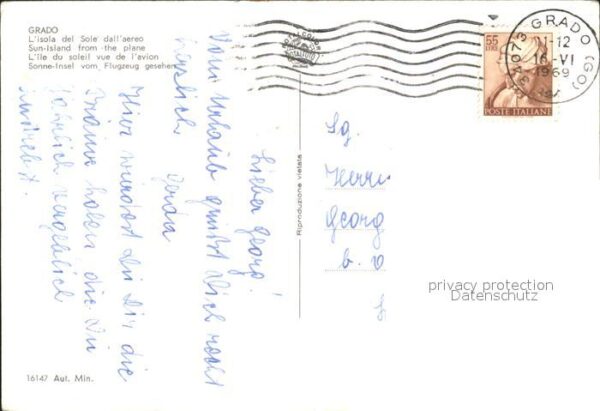 GRADO
L'isola del Sole dall'aereo
Sun-Island from the plane
L'île du soleil vue de l'avion
Sonne-Insel vom Flugzeug gesehen
55
LIRE
POSTE ITALIANE
GRADO (GO)
11-12
16-VI
1969
Lieber Georg!
Vom Urlaub grüßt Dich recht
herzlich
Gerda
Hier würdest Du Dir die
Bräune holen die Du
vergeblich
anstrebst.
Riproduzione vietata
Sg.
Herrn
Georg
b. v
privacy protection
Datenschutz
16147 Aut. Min.